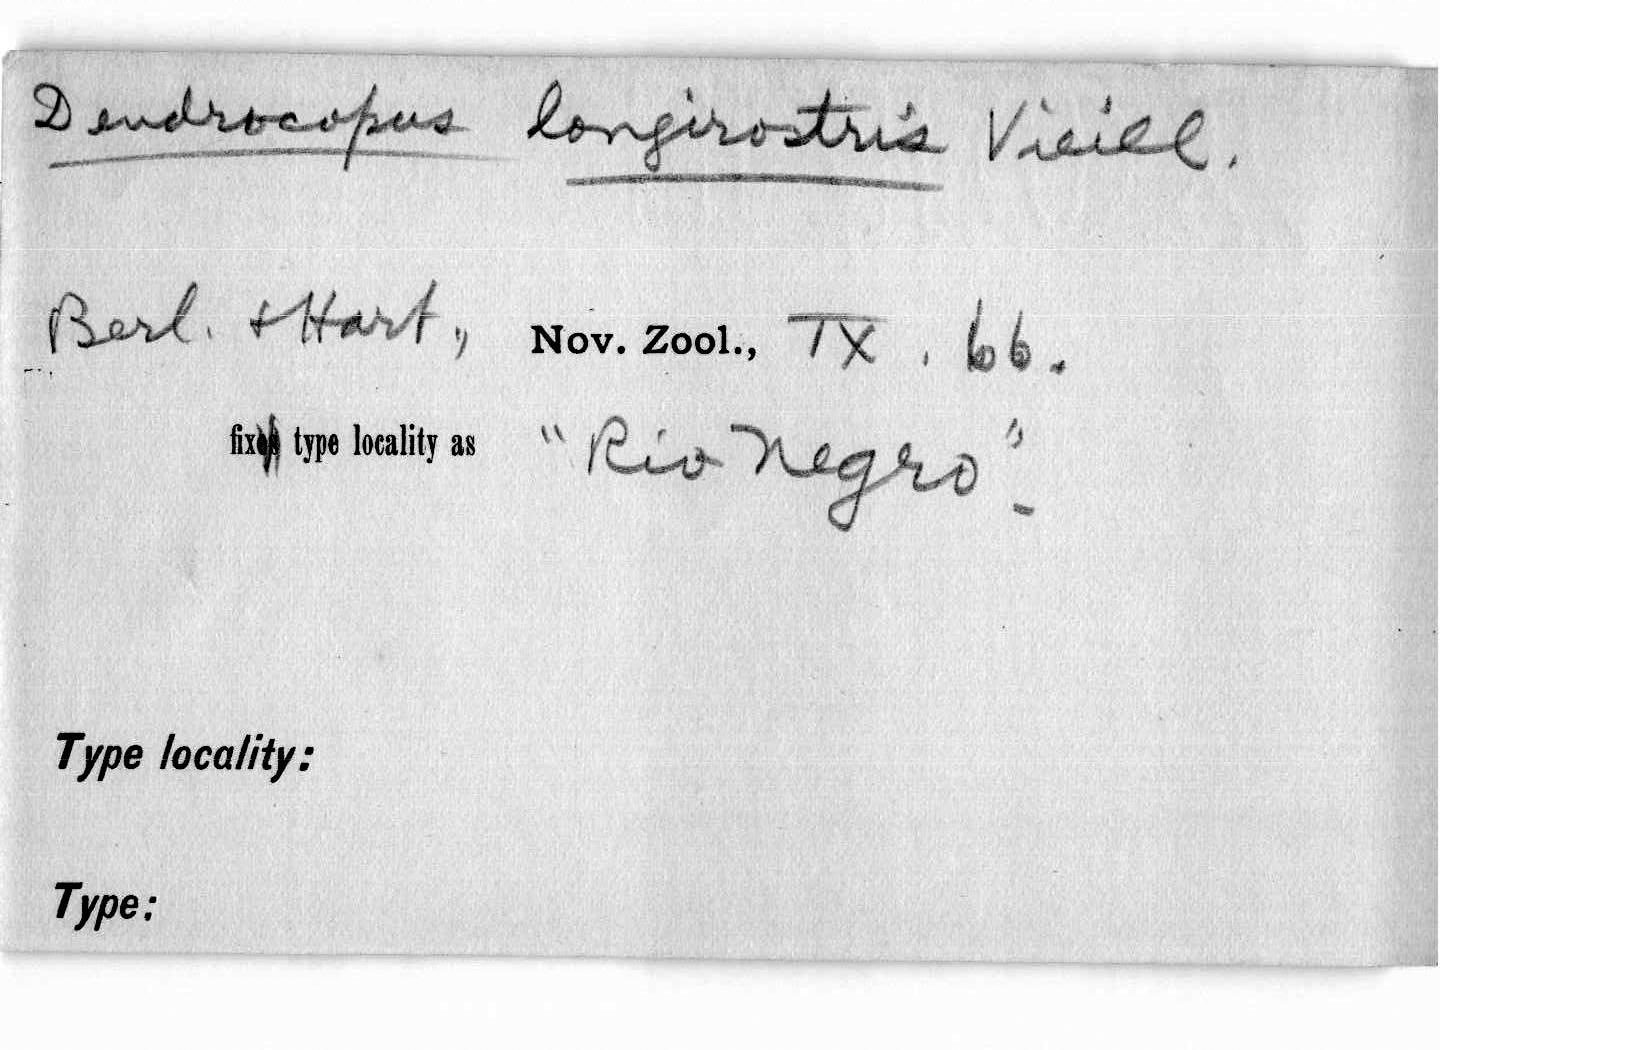 Dendrocopus longirostris Vieill.
Berl. & Hart., Nov. Zool., IX. 66.
fix type locality as "Rio Negro".
Type locality:
Type: